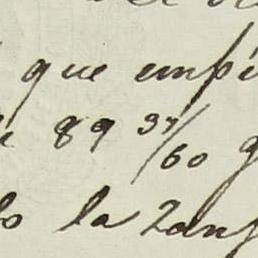 que empi
89 37/60 g
lo la Zanj